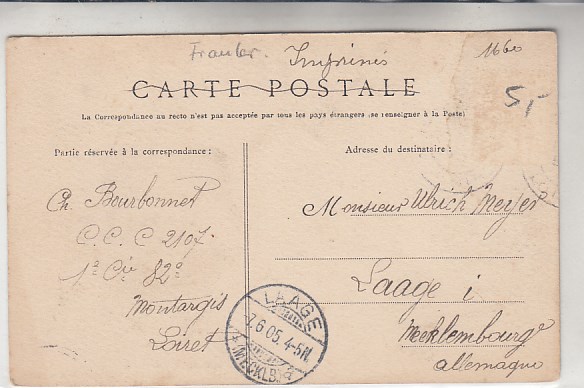 Imprimés
1660
CARTE POSTALE
5,-
La Correspondance au recto n'est pas acceptée par tous les pays étrangers (se renseigner à la Poste)
Partie réservée à la correspondance :
Adresse du destinataire :
Ch. Bourbonnet
C.C.C 2107
1e Cie 82e
Montargis
Loiret
Monsieur Ulrich Meyer
Laage i
Mecklembourg
Allemagne
LAAGE
7.6.05. 4-5N.
(MECKLB.)